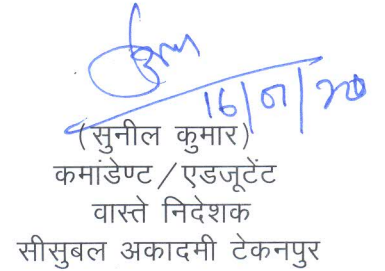 16/01/20
(सुनील कुमार)
कमांडेण्ट/एडजूटेंट
वास्ते निदेशक
सीसुबल अकादमी टेकनपुर